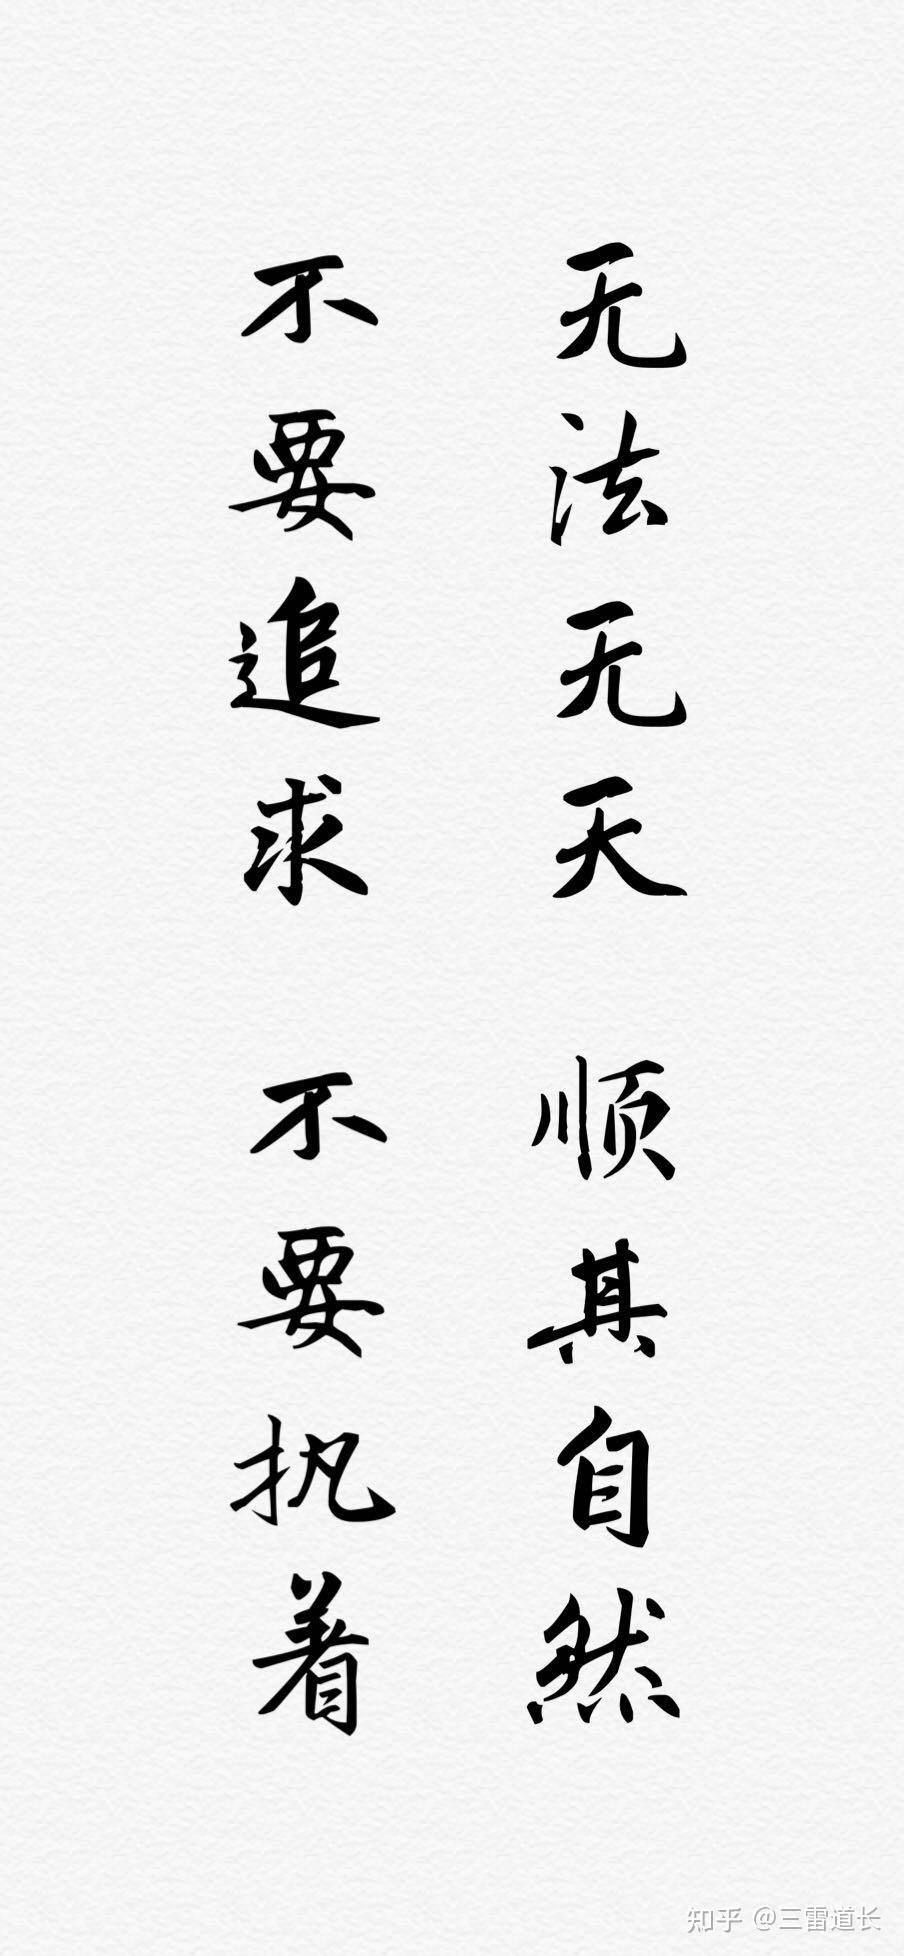 无法无天 顺其自然
不要追求 不要执着
知乎 @三雷道长